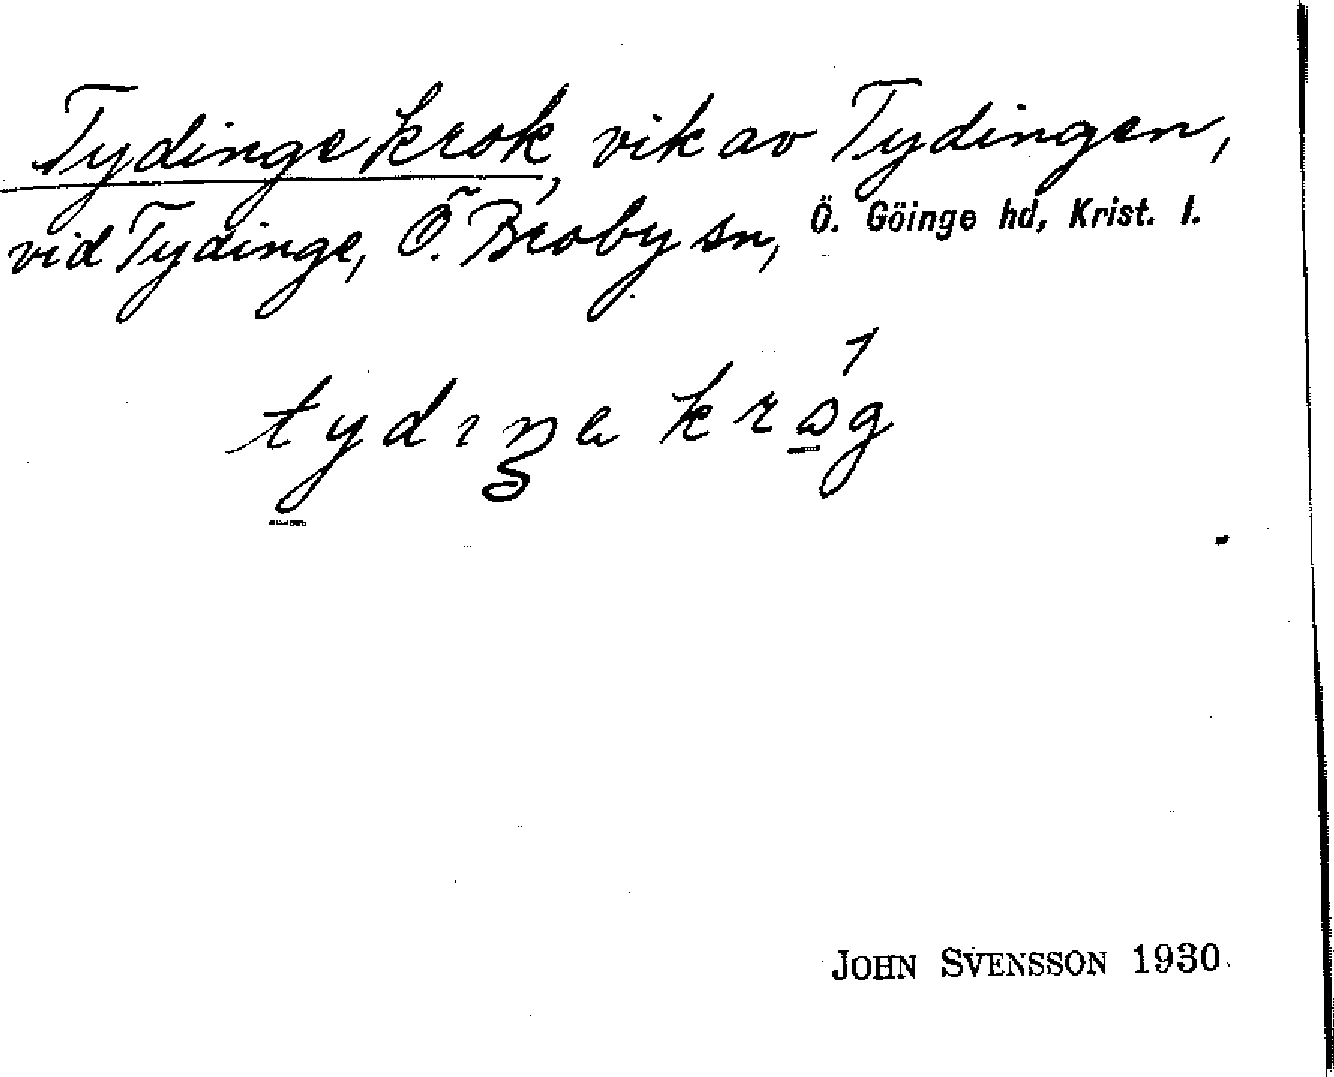 Tydinge krok, vik av Tydingen,
vid Tydinge, Ö. Broby sn, Ö. Göinge hd, Krist. l.
JOHN SVENSSON 1930